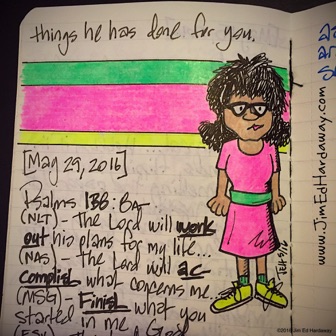 things he has done for you.
[May 29, 2016]
Psalms 138:8a
(NLT) - The Lord will work
out his plans for my life...
(NAS) - the Lord will ac
complish what concerns me.
(MSG) - Finish what you
started in me, God
(ESV)
www.JimEdHardaway.com
JEH 5/16
©2016 Jim Ed Hardaway